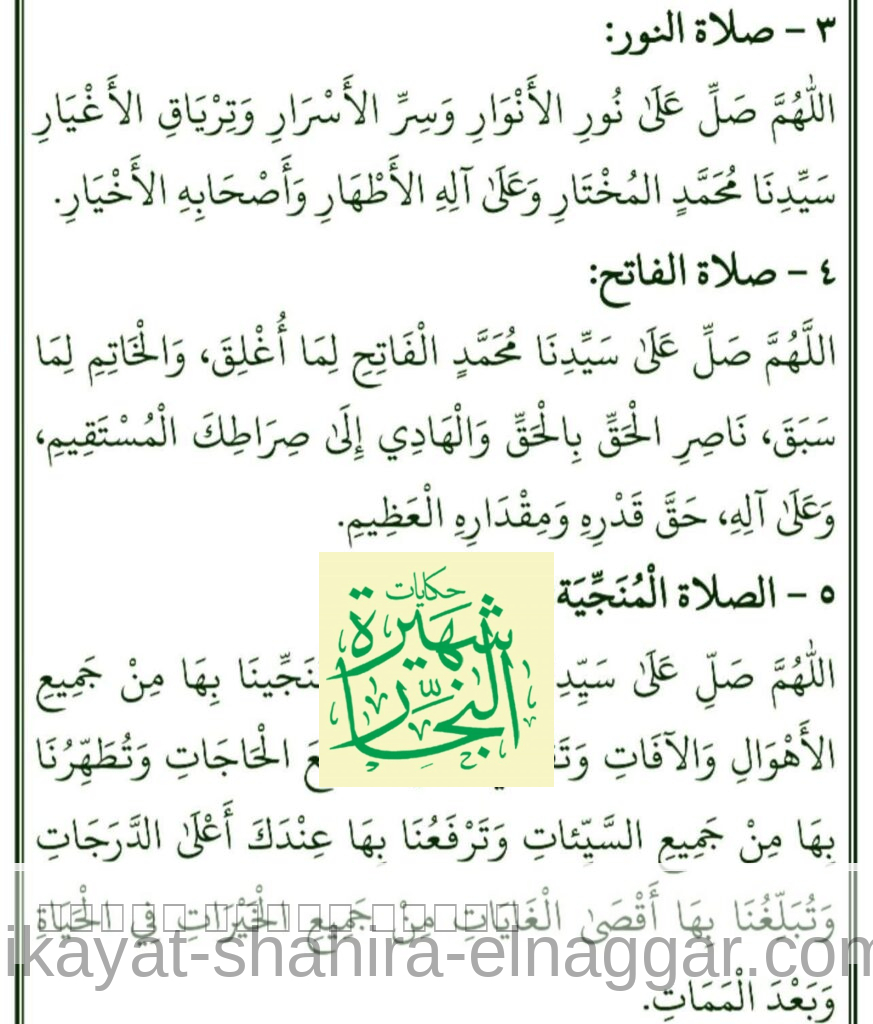 ٣ – صلاة النور:
اللّٰهُمَّ صَلِّ عَلَىٰ نُورِ الأَنْوَارِ وَسِرِّ الأَسْرَارِ وَتِرْيَاقِ الأَغْيَارِ
سَيِّدِنَا مُحَمَّدٍ المُخْتَارِ وَعَلَىٰ آلِهِ الأَطْهَارِ وَأَصْحَابِهِ الأَخْيَارِ.
٤ – صلاة الفاتح:
اللَّهُمَّ صَلِّ عَلَىٰ سَيِّدِنَا مُحَمَّدٍ الْفَاتِحِ لِمَا أُغْلِقَ، وَالْخَاتِمِ لِمَا
سَبَقَ، نَاصِرِ الْحَقِّ بِالْحَقِّ وَالْهَادِي إِلَىٰ صِرَاطِكَ الْمُسْتَقِيمِ،
وَعَلَىٰ آلِهِ، حَقَّ قَدْرِهِ وَمِقْدَارِهِ الْعَظِيمِ.
٥ – الصلاة الْمُنَجِّيَة
حكايات
شهيرة
النجار
اللّٰهُمَّ صَلِّ عَلَىٰ بِهَا مِنْ جَمِيعِ
الأَهْوَالِ وَالآفَاتِ الْحَاجَاتِ وَتُطَهِّرُنَا
بِهَا مِنْ جَمِيعِ السَّيِّئاتِ وَتَرْفَعُنَا بِهَا عِنْدَكَ أَعْلَىٰ الدَّرَجَاتِ
وَتُبَلِّغُنَا بِهَا أَقْصَىٰ الْغَايَاتِ مِنْ جَمِيعِ الْخَيْرَاتِ فِي الْحَيَاةِ
ikayat-shahira-elnaggar.com
وَبَعْدَ الْمَمَاتِ.